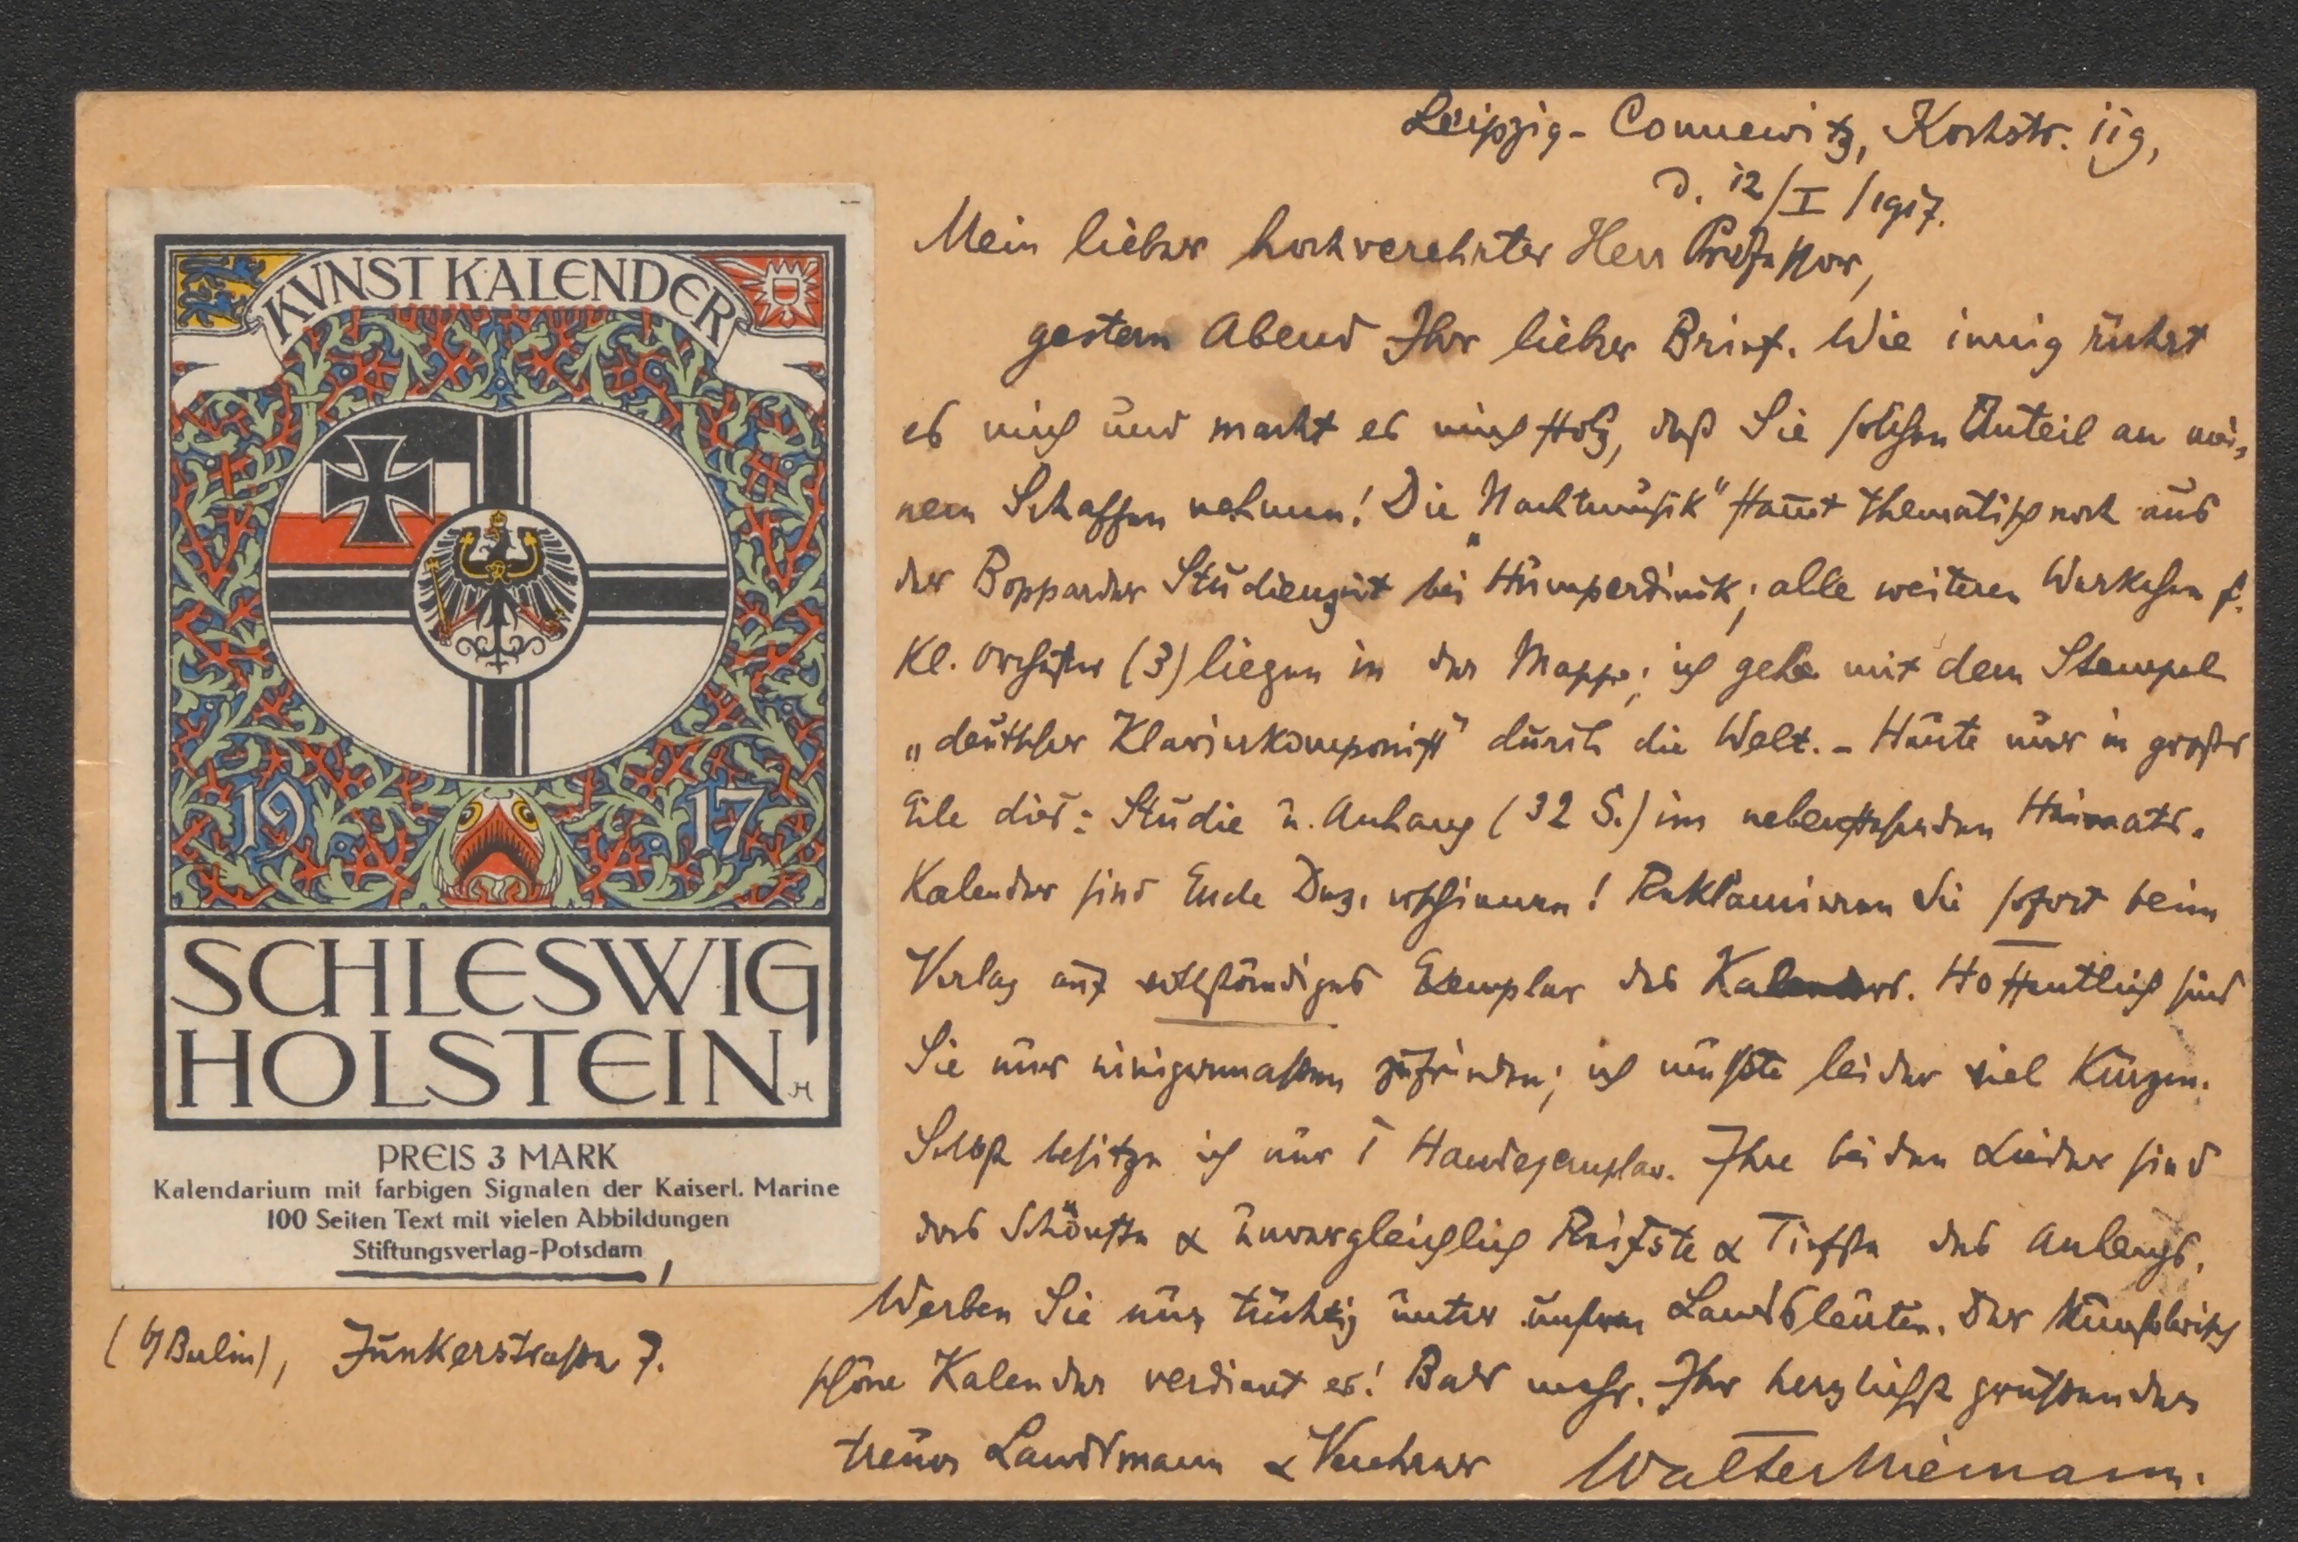 Leipzig-Connewitz, Kochstr. 119,
d. 12/I/1917.
Mein lieber hochverehrter Herr Professor,
gestern Abend Ihr lieber Brief. Wie innig rührt
es mich und macht es mich stolz, daß Sie solchen Anteil an mei-
nem Schaffen nehmen! Die „Nachtmusik" stammt thematisch noch aus
der Bopparder Studienzeit bei Humperdinck; alle weiteren Werkchen f.
kl. Orchester (3) liegen in der Mappe; ich gehe mit dem Stempel
„deutscher Klavierkomponist" durch die Welt. – Heute nur in großer
Eile dies: Studie u. Anhang (32 S.) im nebenstehenden Heimats-
Kalender sind Ende Dez. erschienen! Reklamieren Sie sofort beim
Verlag auf vollständiges Exemplar des Kalenders. Hoffentlich sind
Sie nur einigermassen zufrieden; ich mußte leider viel kürzen.
Selbst besitze ich nur 1 Handexemplar. Ihre beiden Lieder sind
das Schönste & unvergleichlich Reifste & Tiefste des Anhangs.
Werben Sie nur tüchtig unter unsern Landsleuten. Der künstlerisch
schöne Kalender verdient es! Bald mehr. Ihr herzlichst grüssender
treuer Landsmann & Verehrer Walter Niemann.
KVNST KALENDER
19 17
SCHLESWIG
HOLSTEIN
PREIS 3 MARK
Kalendarium mit farbigen Signalen der Kaiserl. Marine
100 Seiten Text mit vielen Abbildungen
Stiftungsverlag-Potsdam,
(b/Berlin), Junkerstrasse 7.